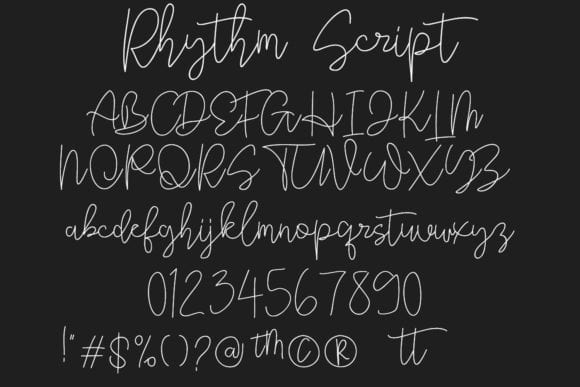 Rhythm Script
ABCDEFGHIJKLM
NOPQRSTUVWXYZ
abcdefghijklmnopqrstuvwxyz
01234567890
!"#$%()?@™©® tt